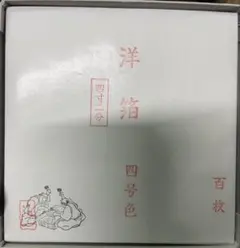 洋箔
四寸二分
四号色
百枚